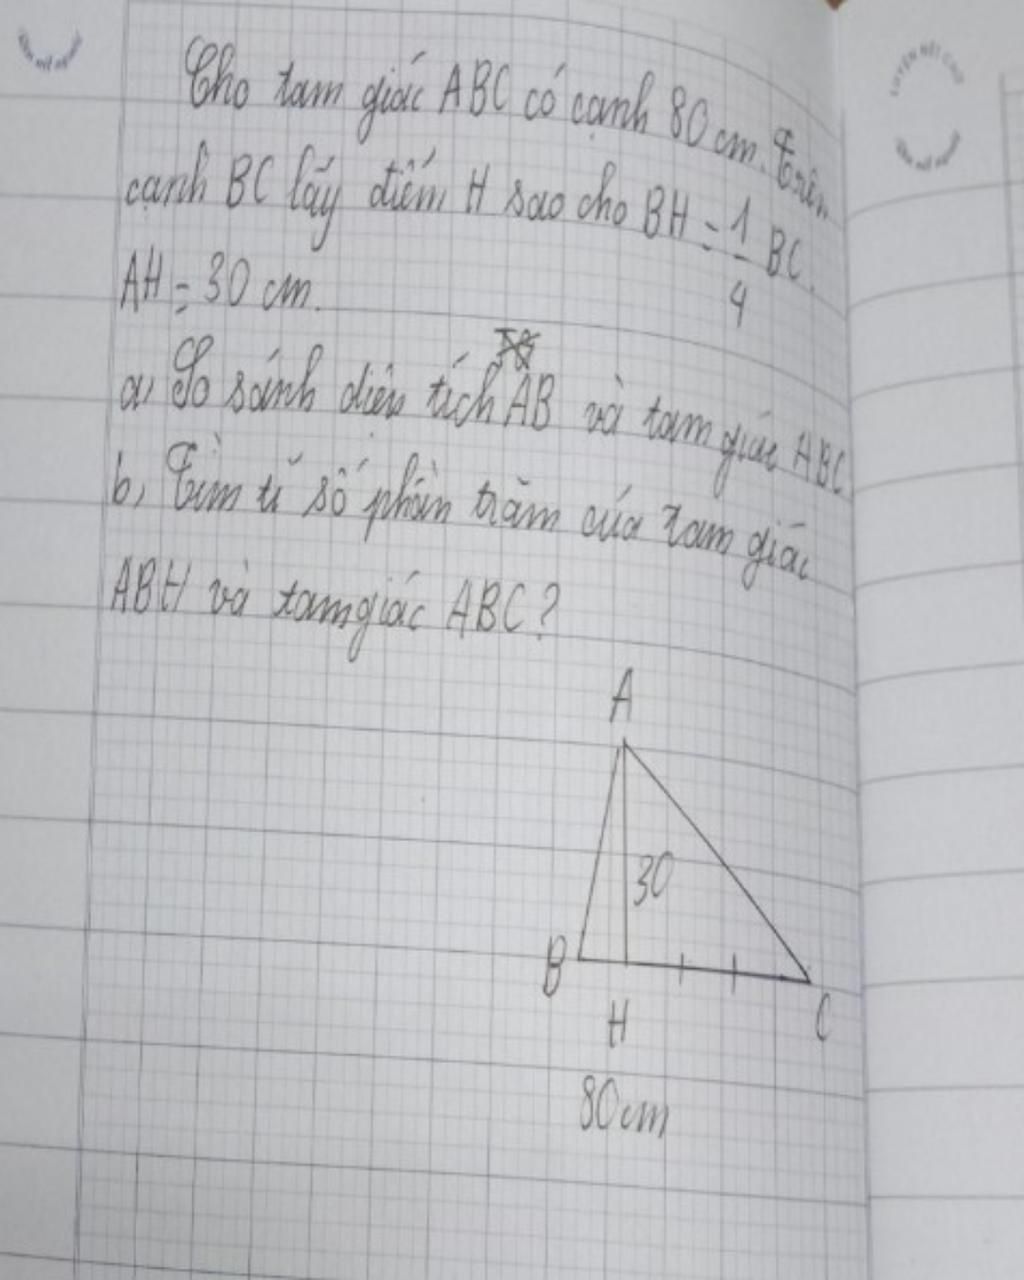 Cho tam giác ABC có cạnh 80 cm. Trên
cạnh BC lấy điểm H sao cho BH = 1/4 BC.
AH = 30 cm.
a, So sánh diện tích AB và tam giác ABC
b, Tìm tỉ số phần trăm của tam giác
ABH và tam giác ABC?
A
30
B
H
C
80cm